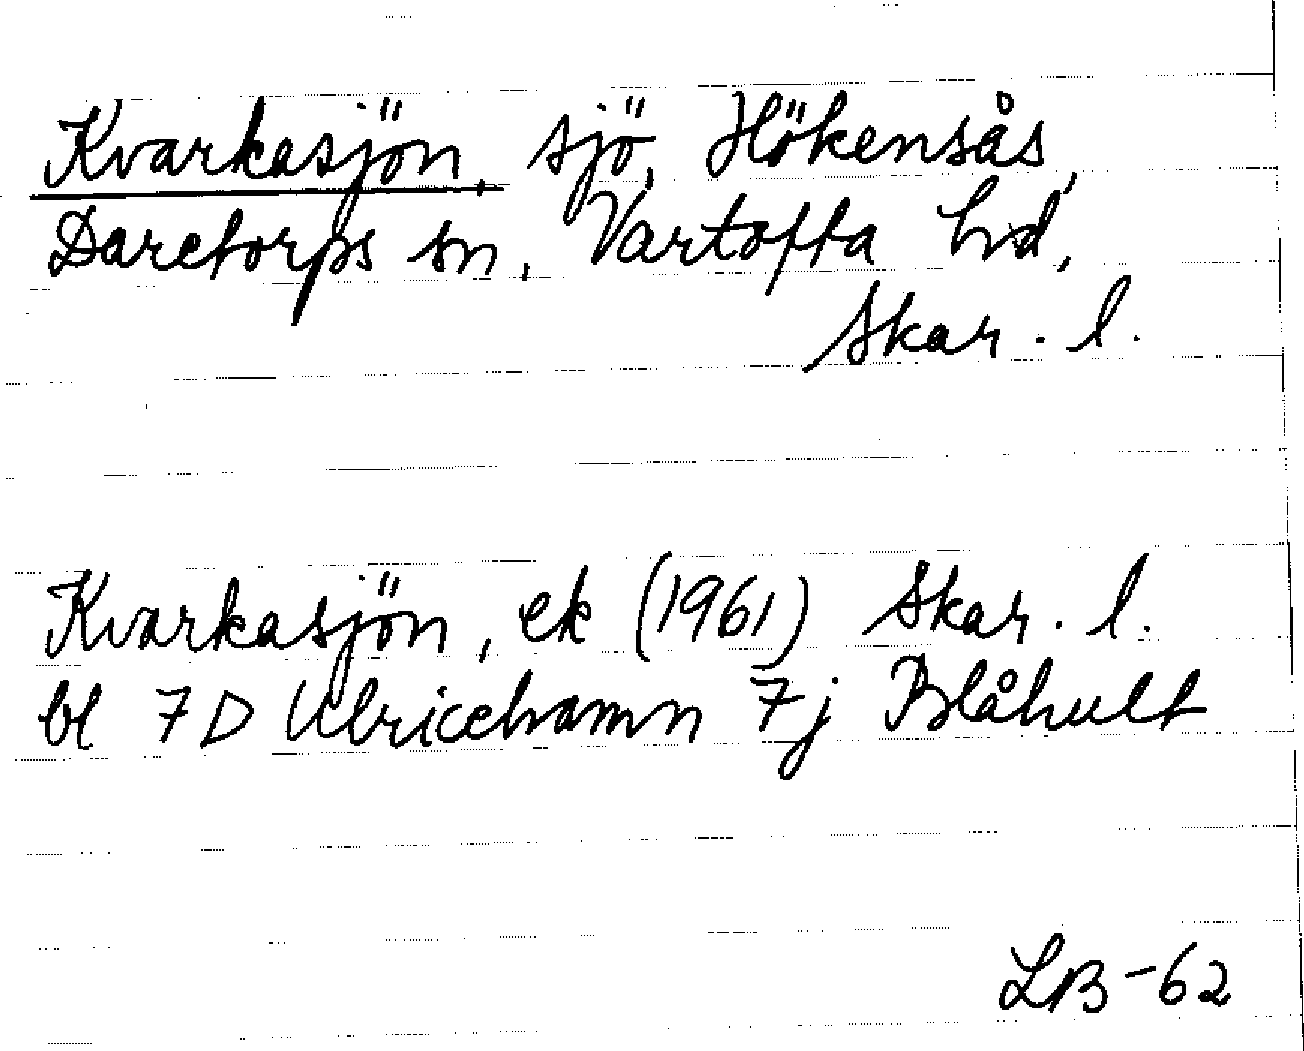 Kvarkasjön, sjö, Hökensås,
Daretorps sn, Vartofta hd,
Skar. l.
Kvarkasjön, ek (1961) Skar. l.
bl 7D Ulricehamn 7j Blåhult
LB-62